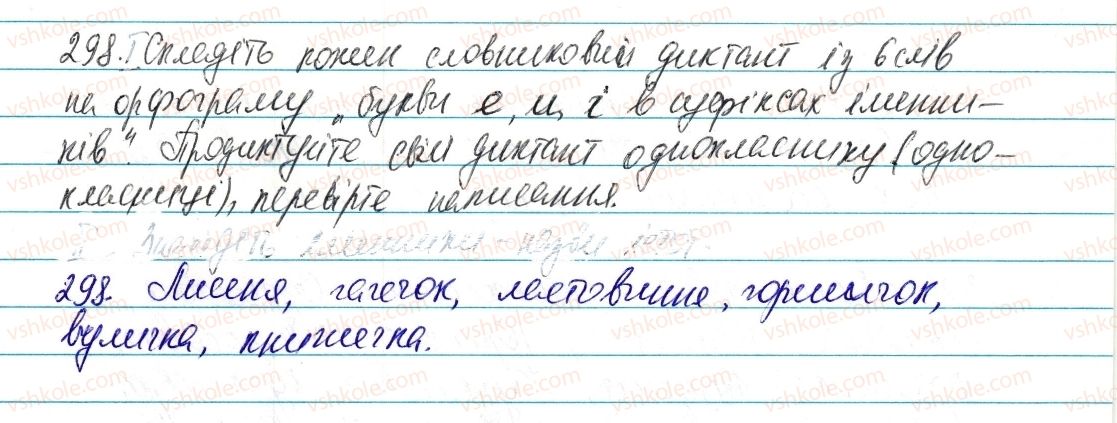 298. I Складіть кожен словниковий диктант із 6 слів
на орфограму "букви е, и, і в суфіксах іменни-
ків". Продиктуйте свій диктант однокласнику (одно-
класниці), перевірте написання.
Знайдіть іменники - назви
298. Лисеня, гаечок, ластовиння, горщичок,
вуличка, книжечка.